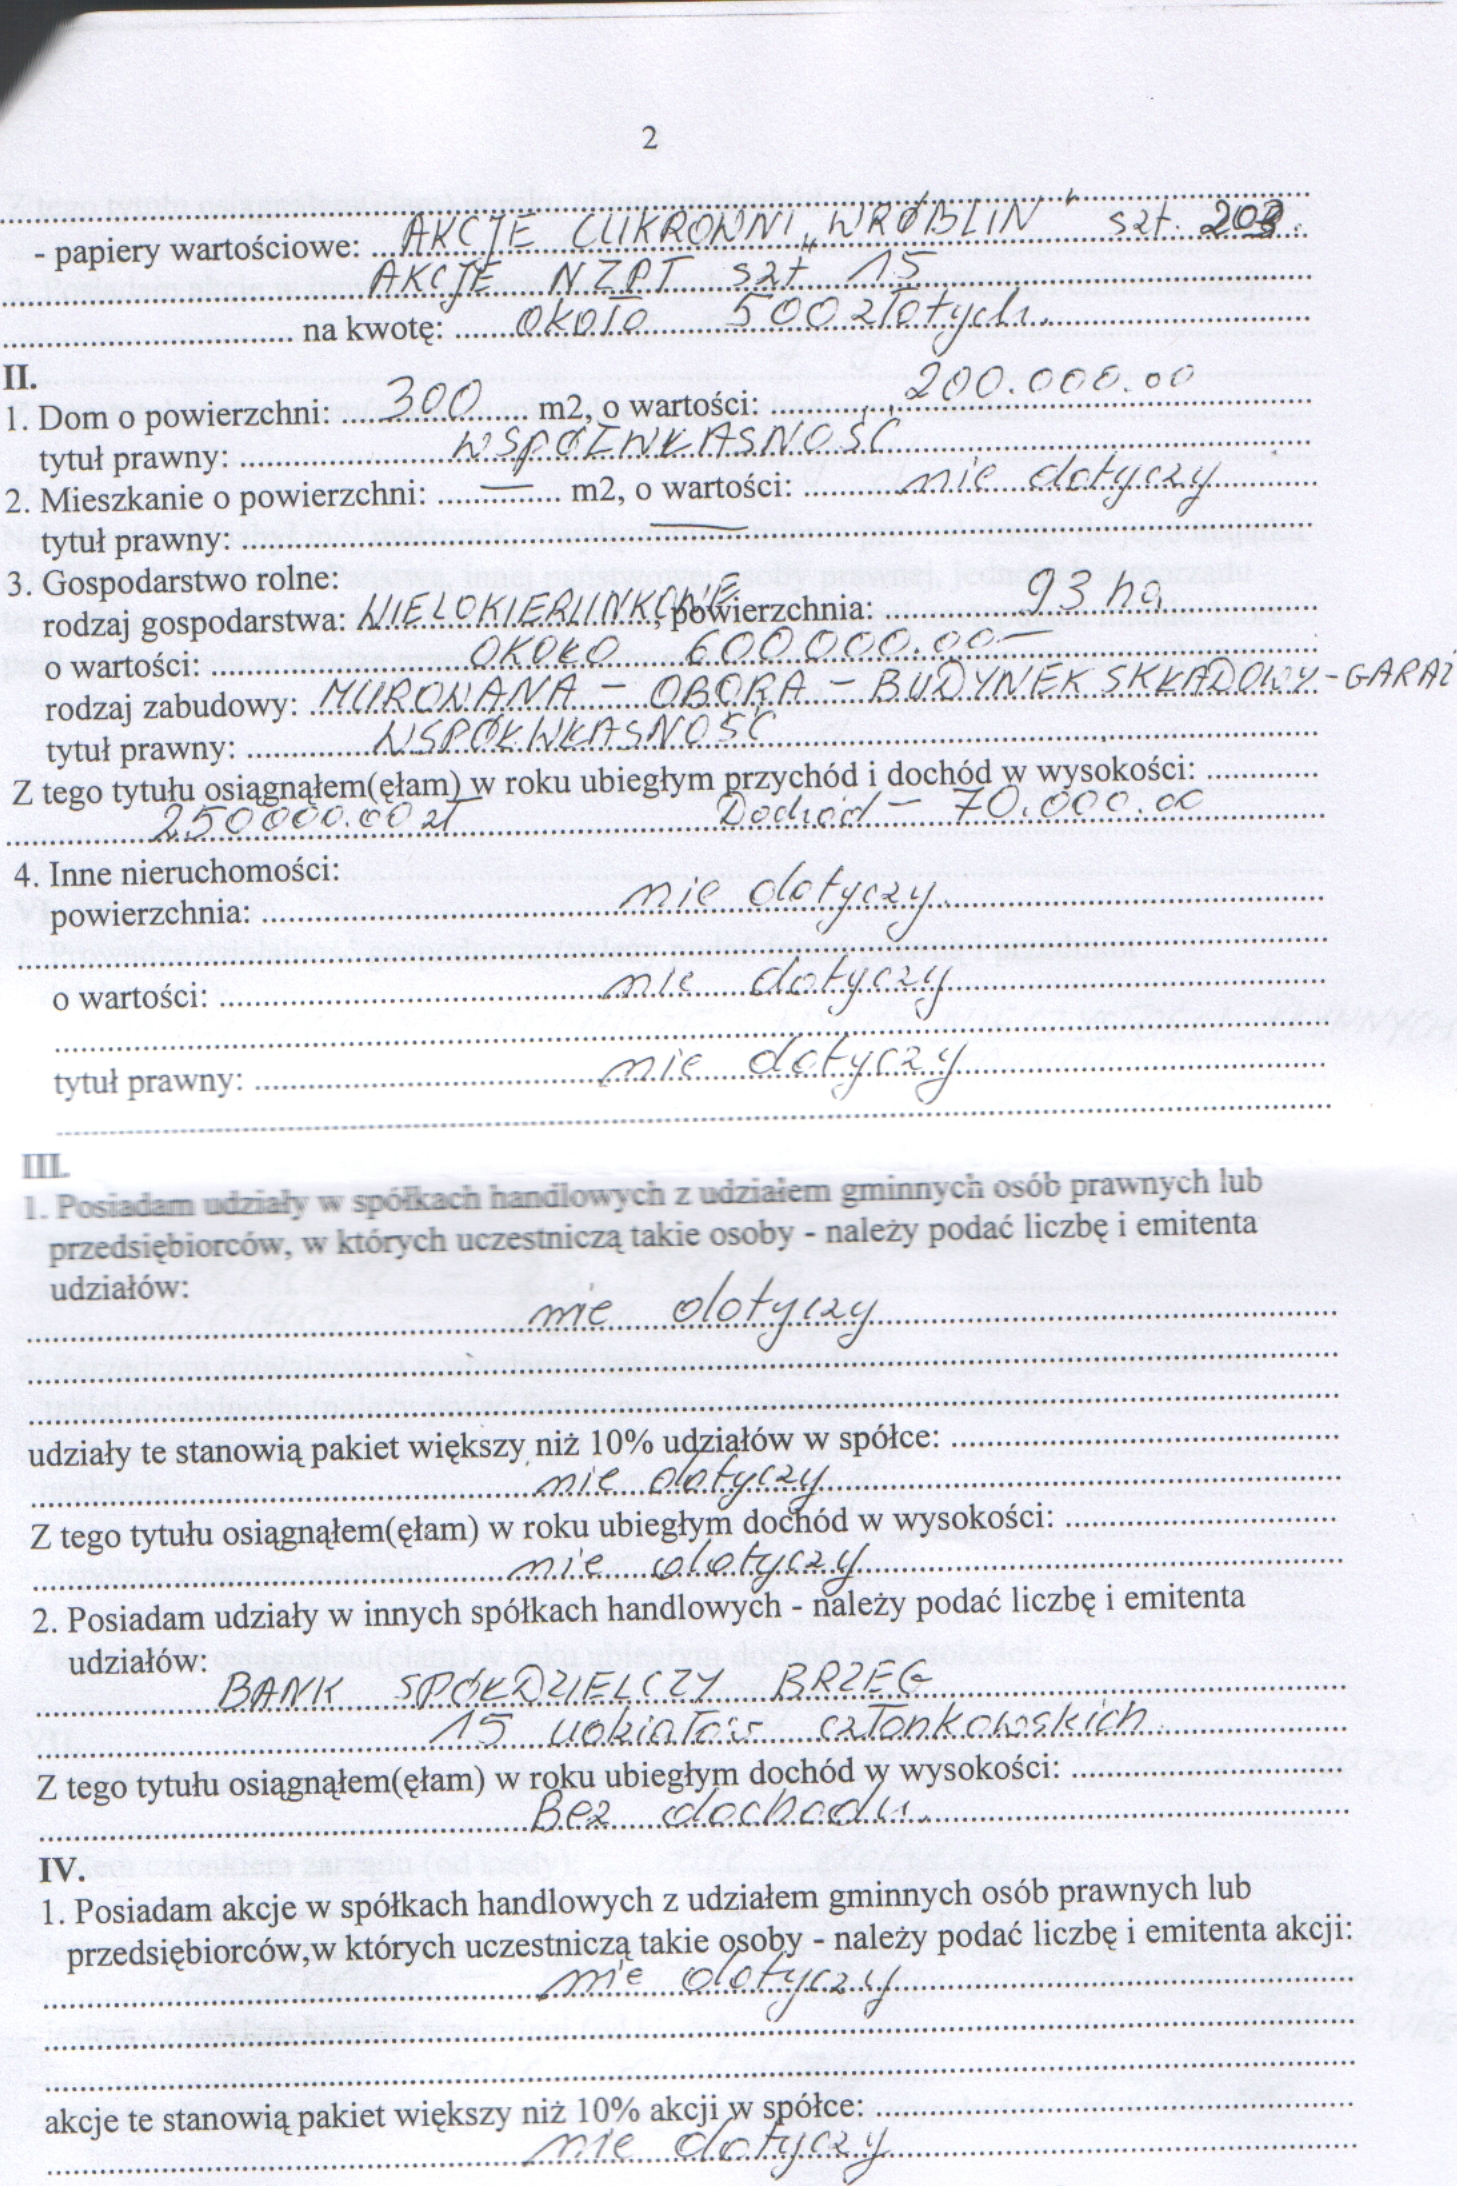 2
- papiery wartościowe: AKCJE CUKROWNI „WRÓBLIN" szt.
AKCJE NZPT szt 15
na kwotę: około 500 złotych.
II.
1. Dom o powierzchni: 300 m2, o wartości: 200.000.00
tytuł prawny: WSPÓŁWŁASNOŚĆ
2. Mieszkanie o powierzchni: — m2, o wartości: nie dotyczy
tytuł prawny: —
3. Gospodarstwo rolne:
rodzaj gospodarstwa: WIELOKIERUNKOWE, powierzchnia: 93 ha
o wartości: OKOŁO 600000.00 —
rodzaj zabudowy: MUROWANA — OBORA — BUDYNEK SKŁADOWY - GARAŻ
tytuł prawny: WSPÓŁWŁASNOŚĆ
Z tego tytułu osiągnąłem(ęłam) w roku ubiegłym przychód i dochód w wysokości:
250000.00 zł Dochód — 70.000.00
4. Inne nieruchomości:
powierzchnia: nie dotyczy
o wartości: nie dotyczy
tytuł prawny: nie dotyczy
III.
1. Posiadam udziały w spółkach handlowych z udziałem gminnych osób prawnych lub
przedsiębiorców, w których uczestniczą takie osoby - należy podać liczbę i emitenta
udziałów:
nie dotyczy
udziały te stanowią pakiet większy niż 10% udziałów w spółce:
nie dotyczy
Z tego tytułu osiągnąłem(ęłam) w roku ubiegłym dochód w wysokości:
nie dotyczy
2. Posiadam udziały w innych spółkach handlowych - należy podać liczbę i emitenta
udziałów:
BANK SPÓŁDZIELCZY BRZEG
15 udziałów członkowskich
Z tego tytułu osiągnąłem(ęłam) w roku ubiegłym dochód w wysokości:
Bez dochodu.
IV.
1. Posiadam akcje w spółkach handlowych z udziałem gminnych osób prawnych lub
przedsiębiorców,w których uczestniczą takie osoby - należy podać liczbę i emitenta akcji:
nie dotyczy
akcje te stanowią pakiet większy niż 10% akcji w spółce:
nie dotyczy